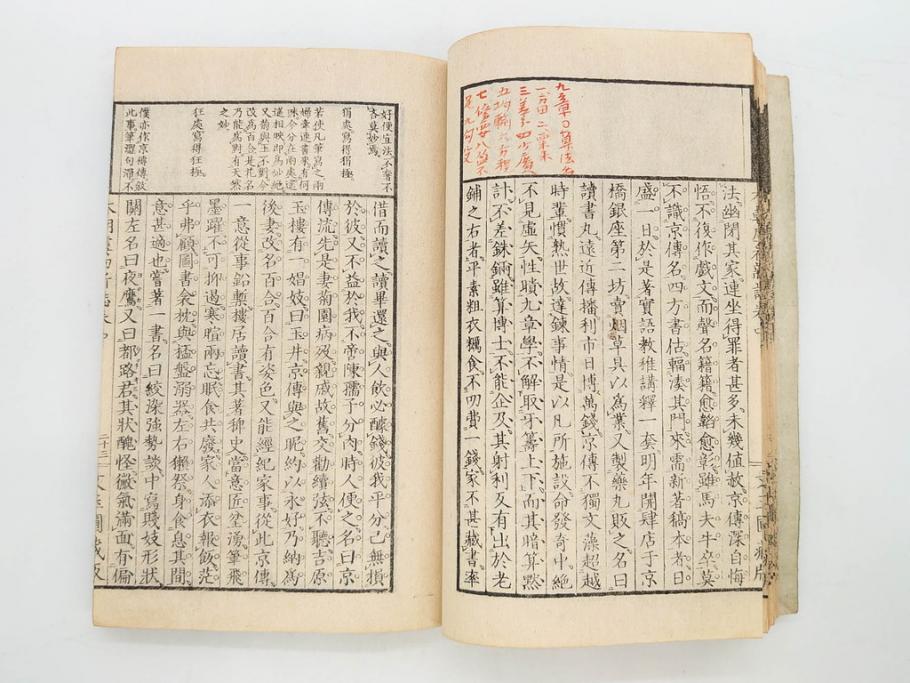 九章〇算法名
一方田 二粟米
三差分 四少廣
五均輸 六方程
法幽閉其家連坐得罪者甚多未幾値赦京傳深自悔
悟不復作戲文而聲名籍籍愈韜愈彰雖馬夫牛卒莫
不識京傳名四方書估輻湊其門來需新著稿本者日
盛一日於是著寶語敎稚講釋一套明年開肆店于京
橋銀座第二坊賣烟草具以爲業又製藥丸販之名曰
讀書丸遠近傳播利市日博萬錢京傳不獨文藻超越
時輩慣熟世故達鍊事情是以凡所施設命發奇中絕
不見虛矢性暗九章學不解取牙籌上下而其暗算黙
計不差銖錙雖算博士不能企及其射利又有出於老
鋪之右者平素粗衣糲食不叨費一錢家不甚藏書率
好便宜法不奢不
吝莫妙焉
狷處寫得狷極
若使凡筆寫之兩
婦幸連書來有何
味今分在兩處遙
遙相映即爲妙絕
又菊與玉不對今
改爲百合是花名
乃能爲對有天然
之妙
狂處寫得狂極
僕亦作京傳傳敍
此事筆澀句滯不
借而讀之讀畢還之與人飲必醵錢彼我平分已無損
於彼又不益於我不啻陳孺子分肉時人便之名曰京
傳流先是妻菊園病歿親戚故舊交勸續弦不聽吉原
玉樓有一娼妓曰玉井京傳與之昵約以永好乃納爲
後妻改名百合百合有姿色又能經紀家事從此京傳
一意從事鉛槧樓居讀書其著稗史當意匠坌湧筆飛
墨躍不可抑遏寒暄兩忘眠食共廢家人添衣報飯茫
乎弗顧圖書衾枕與㯓盤溺器左右獺祭身食息其間
意甚適也嘗著一書名曰絞染強勢談中寫賤妓形狀
關左名曰夜鷹又曰都路君其狀醜怪黴氣滿面有偏
二十三
文
圖
藏
版